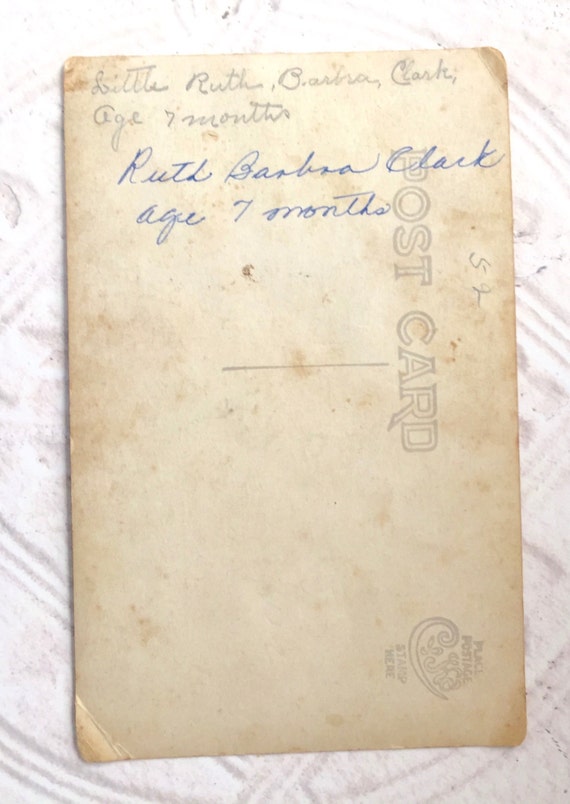 Little Ruth, Barbra, Clark,
Age 7 months
Ruth Barbra Clark
age 7 months
POST CARD
52
PLACE
POSTAGE
STAMP
HERE